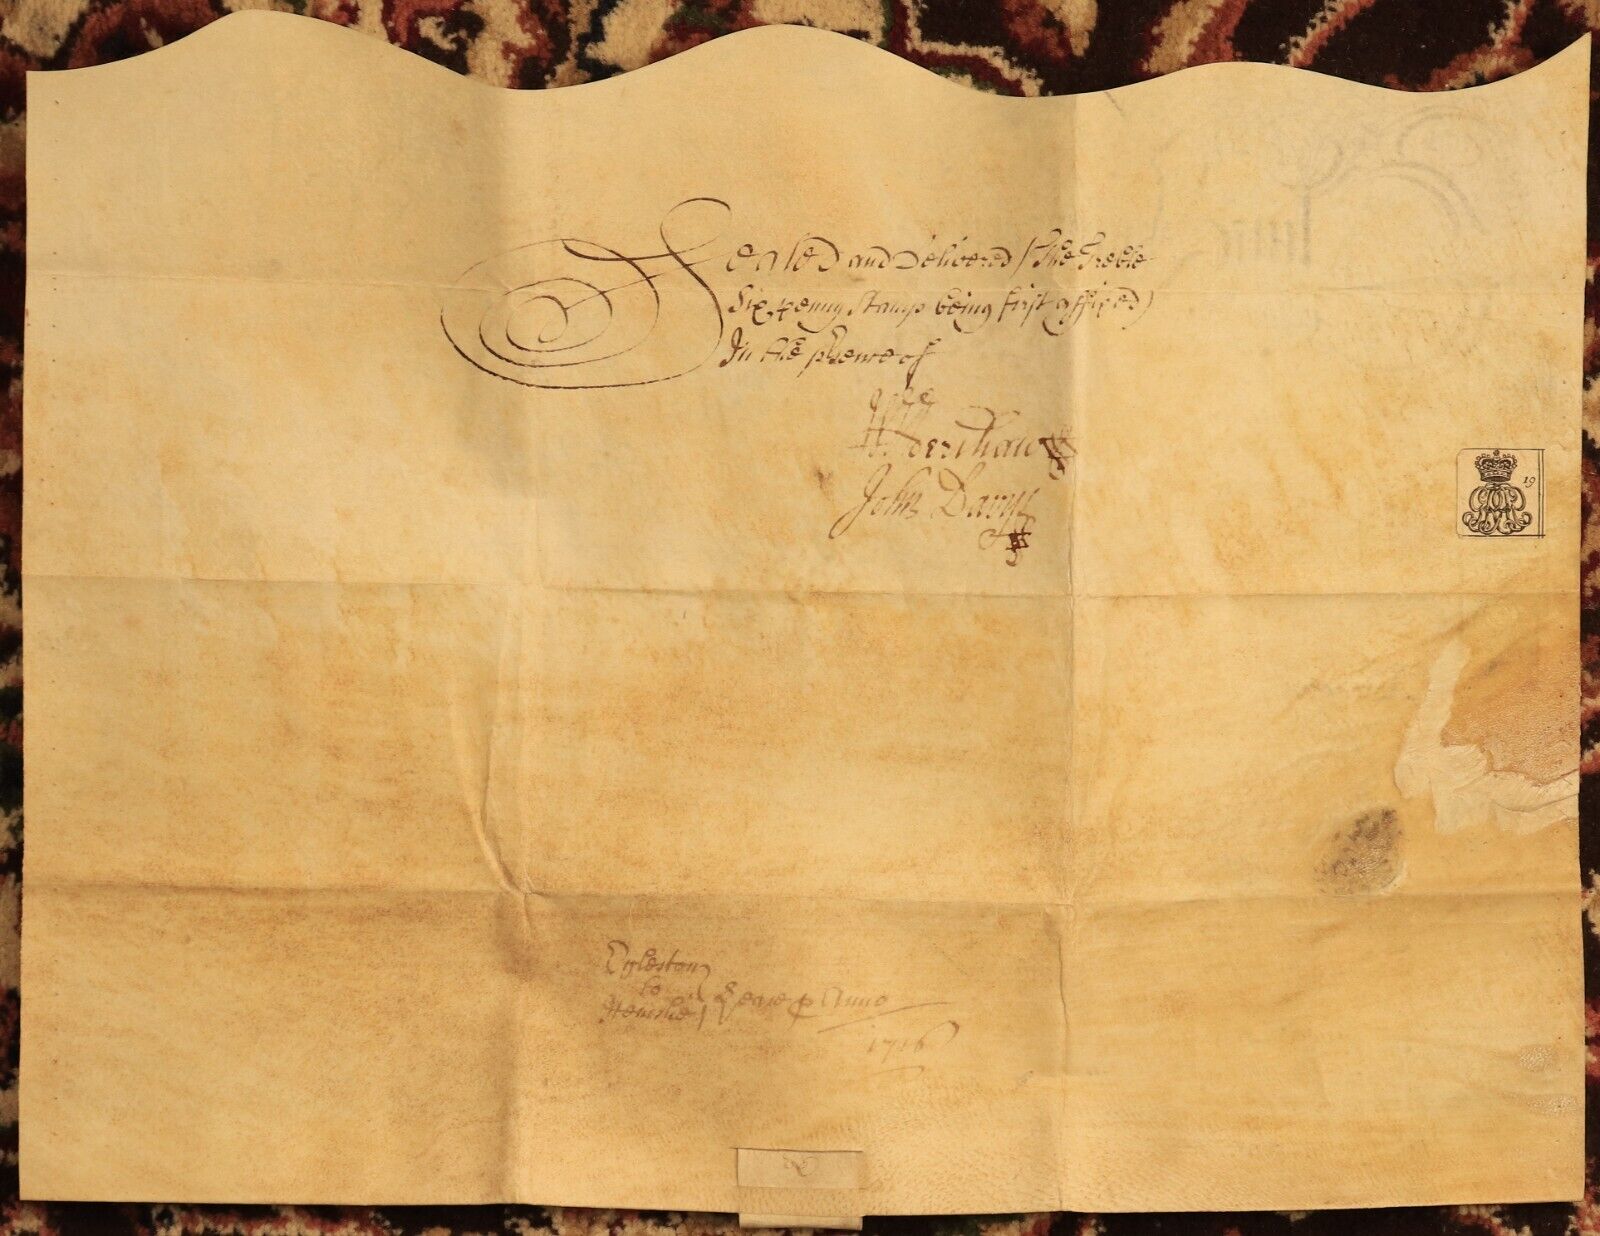 Sealed and Delivered (The Treble
Six penny Stamp being first affixed)
In the presence of
Wm Kershaw
John Davys
19
Egleston
to
Lease p Anno
1716